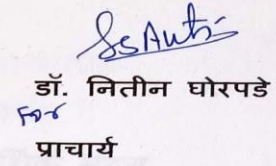 डॉ. नितीन घोरपडे
For
प्राचार्य